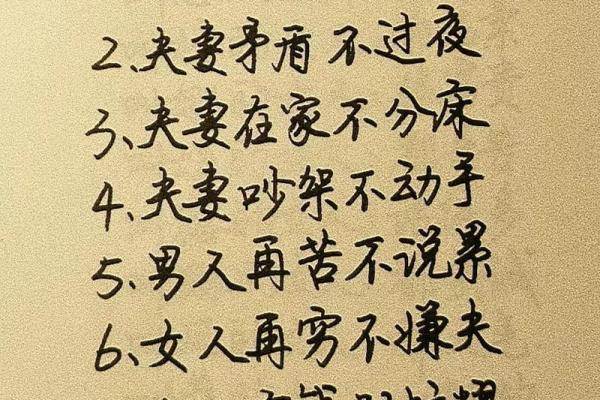 2、夫妻矛盾不过夜
3、夫妻在家不分床
4、夫妻吵架不动手
5、男人再苦不说累
6、女人再穷不嫌夫